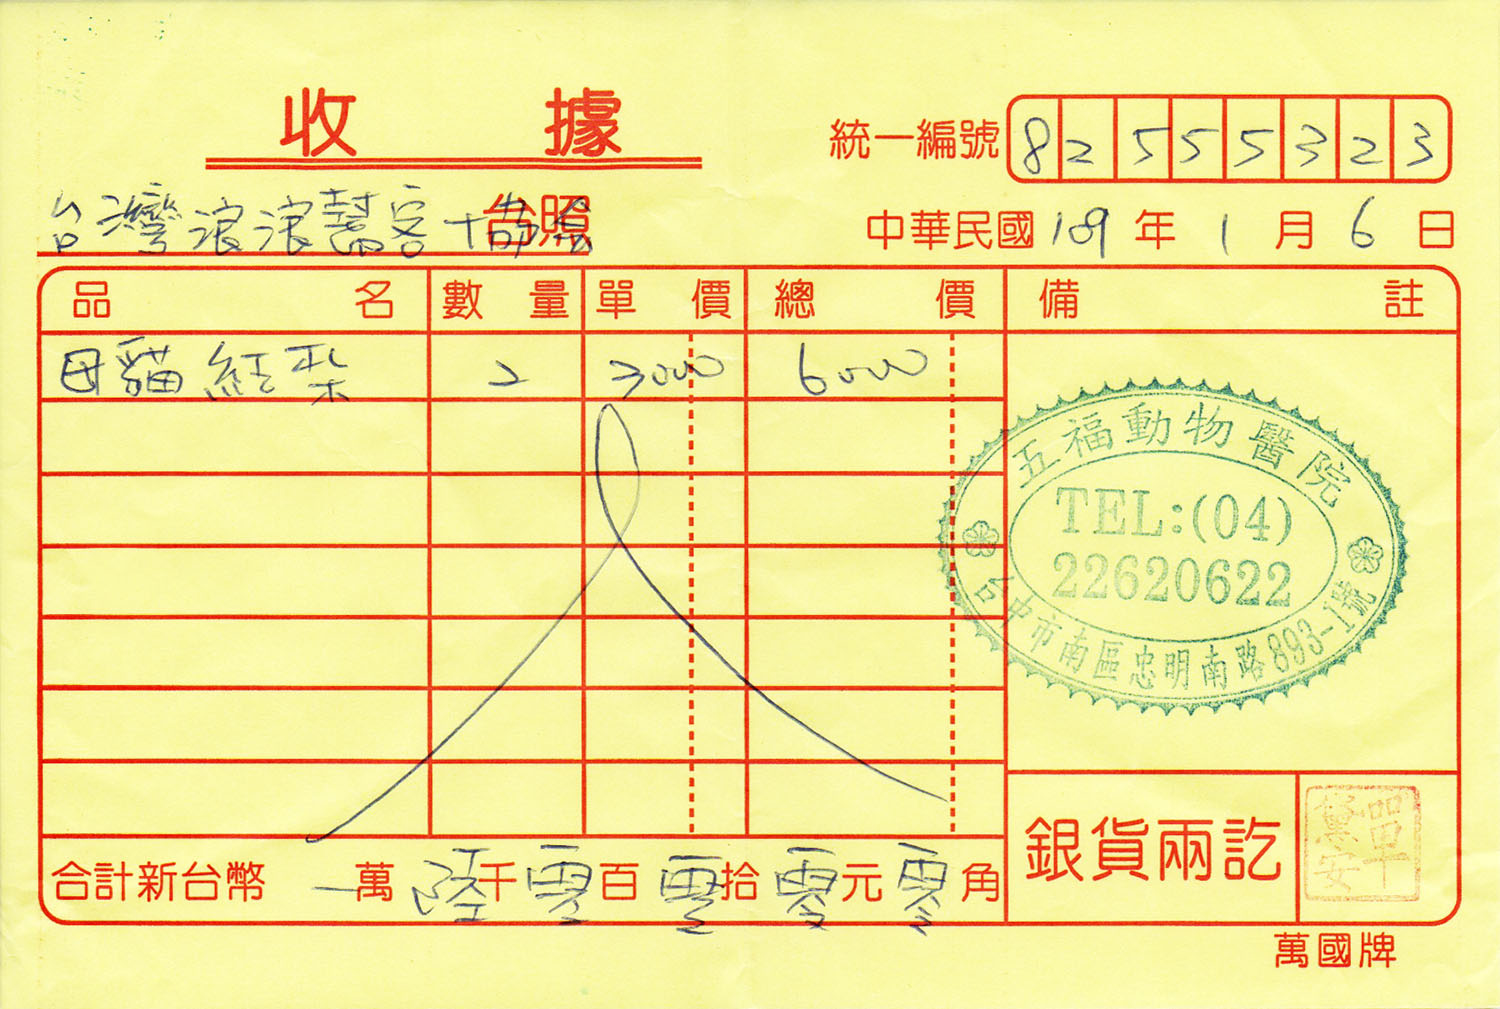 收據
統一編號 82555323
台灣浪浪幫客協會 台照
中華民國 109 年 1 月 6 日
品名 數量 單價 總價 備註
母貓結紮 2 3000 6000
五福動物醫院
TEL:(04)
22620622
台中市南區忠明南路893-1號
合計新台幣 萬 陸千 零百 零拾 零元 零角
銀貨兩訖
單黛安
萬國牌